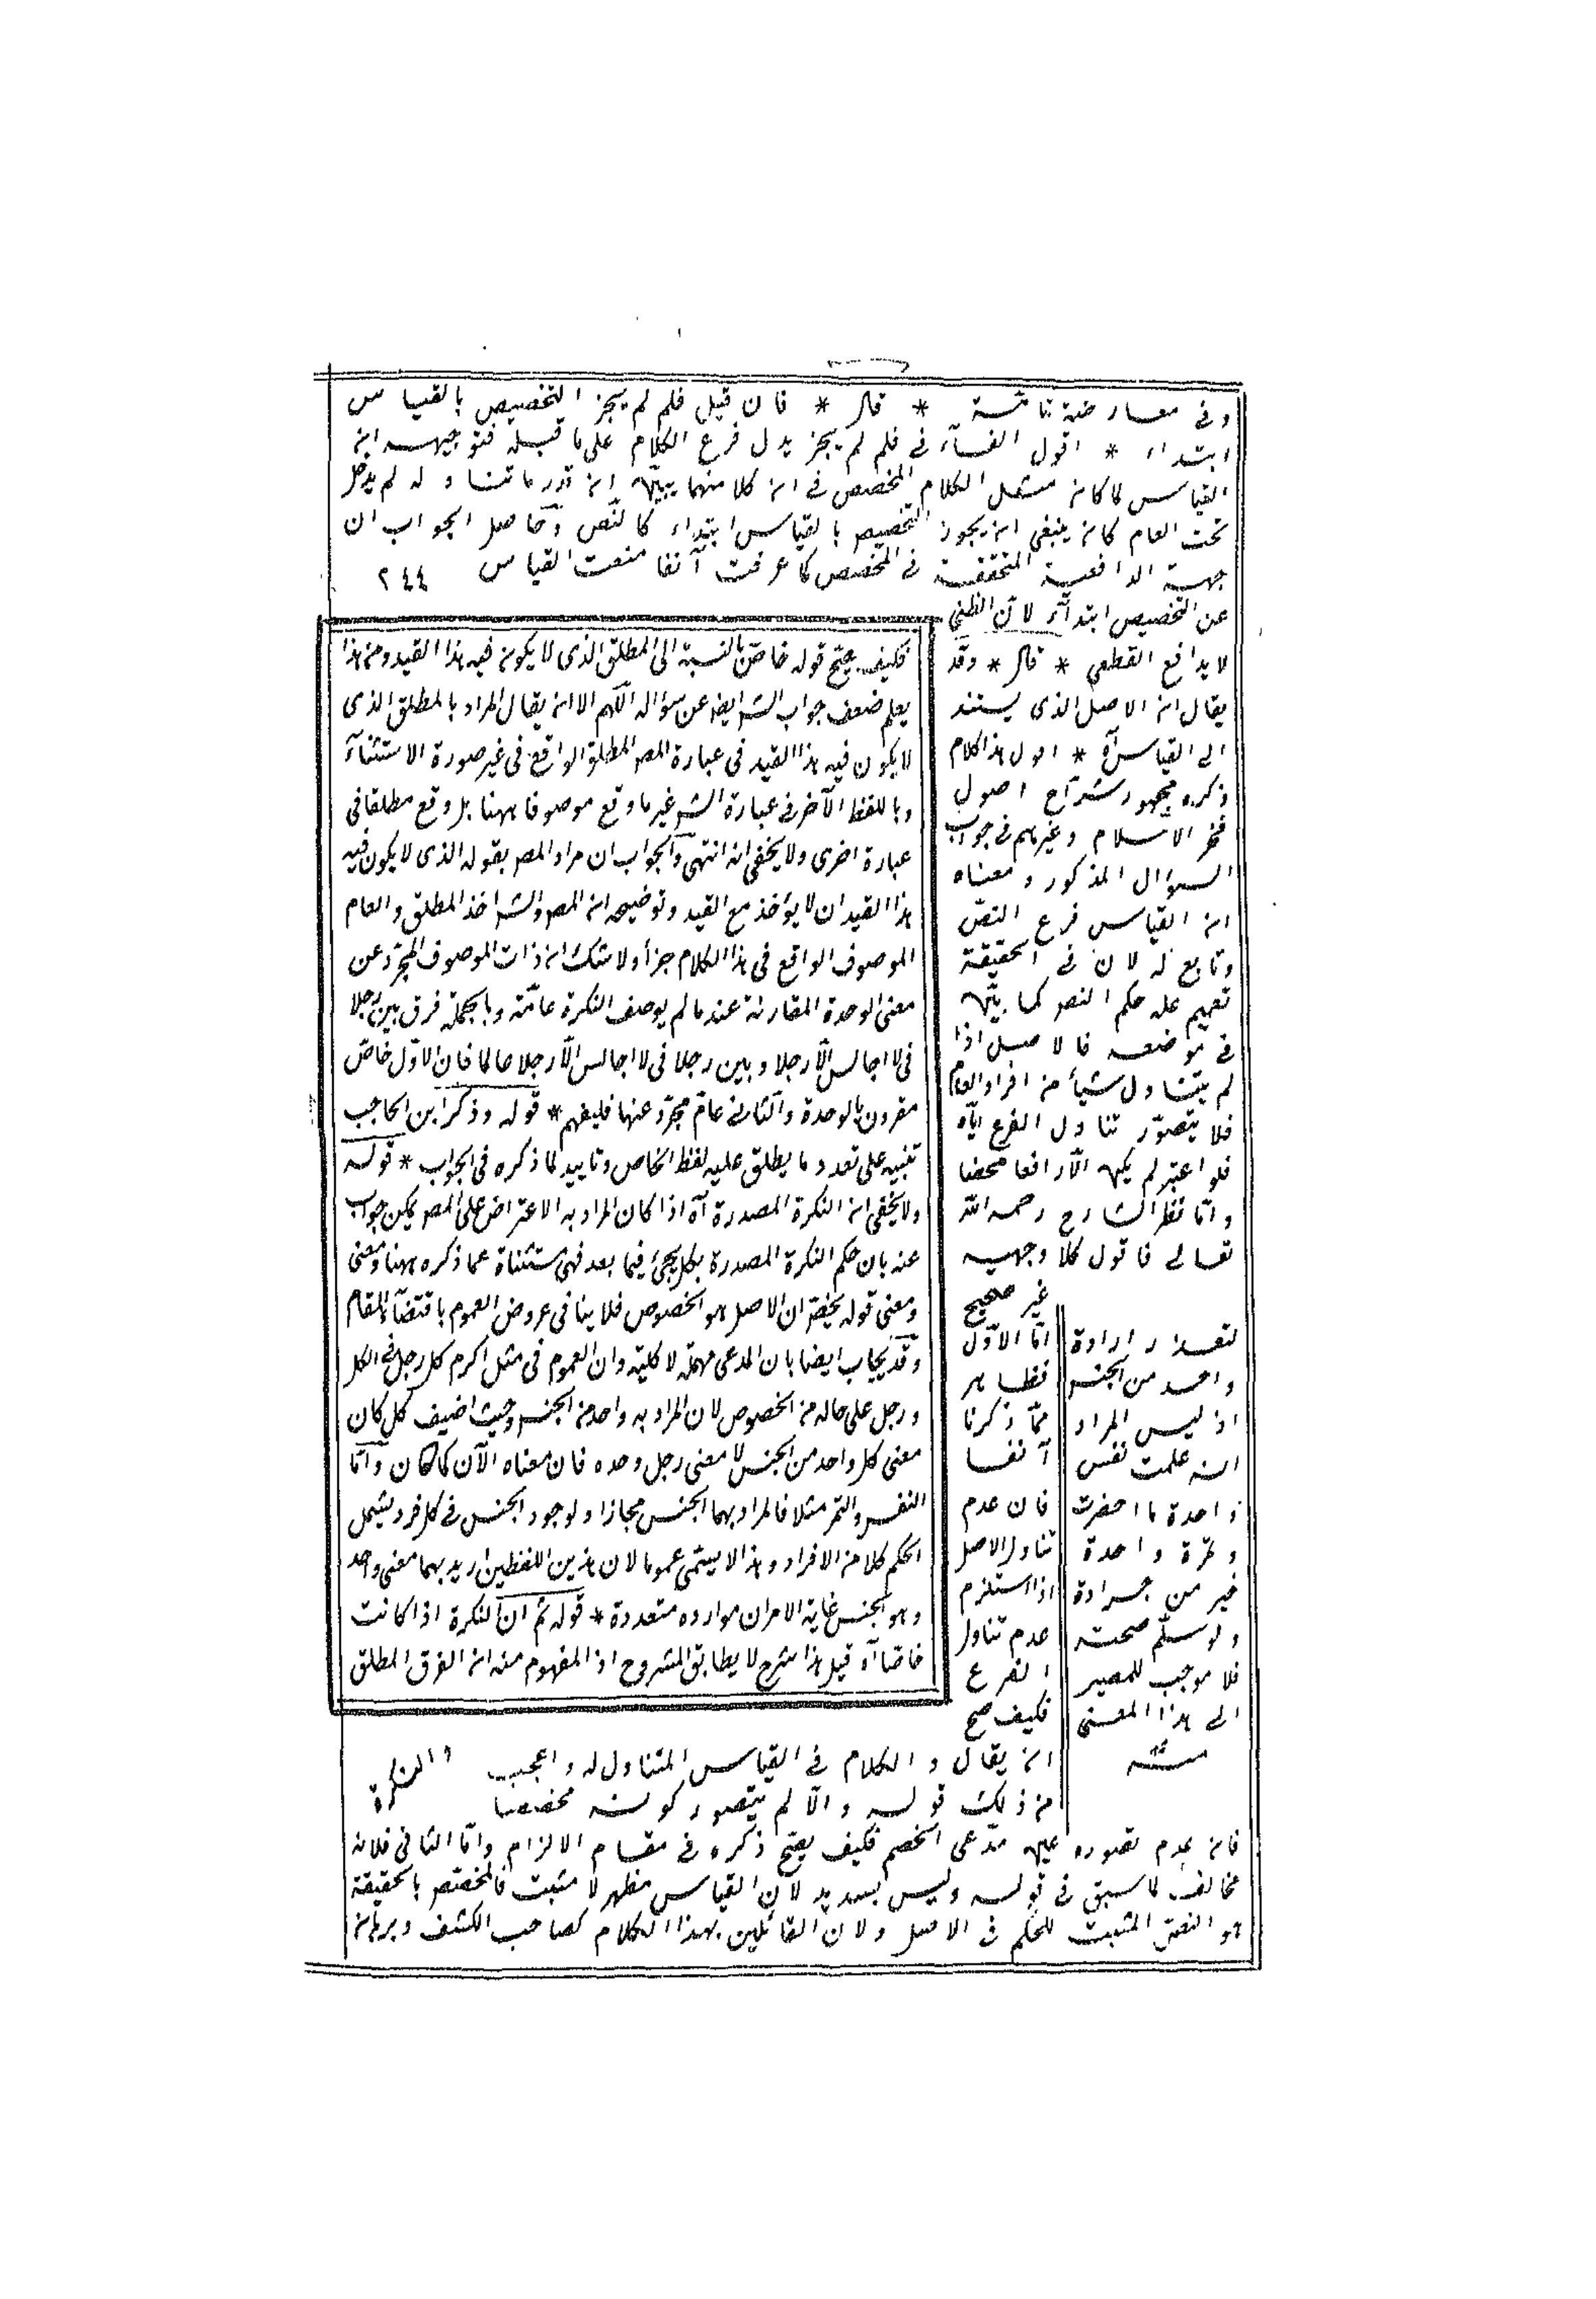 وفى معارضة ثامنة * قال * فان قيل فلم لم يجز التخصيص بالقياس
ابتداء * اقول الفاء فى فلم لم يجز يدل فرع الكلام على ما قبله فتوجيهه ان
القياس لما كان مثل الكلام المخصص فى ان كلا منهما يبين ان قدر ما تناوله لم يدخل
تحت العام كان ينبغى ان يجوز التخصيص بالقياس ابتداء كالنص وحاصل الجواب ان
جهة الدافعية المتحققة فى المخصص كما عرفت آنفا منعت القياس
٢٤٤
عن التخصيص ابتداء لان الظنى
لا يدافع القطعى * قال * وقد
يقال ان الاصل الذى يستند
الى القياس آه * اقول هذا كلام
ذكره جمهور شراح اصول
فخر الاسلام وغيرهم فى جواب
السؤال المذكور ومعناه
ان القياس فرع النص
وتابع له لان فى الحقيقة
تعميم علة حكم النص كما بين
فى موضعه فالاصل اذا
لم يتناول شيأ من افراد العام
فلا يتصور تناول الفرع اياه
فلو اعتبر لم يكن الا رافعا محضا
واما نظر الشارح رحمه الله
تعالى فاقول كلا وجهيه
غير صحيح
اما الاول
فظاهر
مما ذكرنا
آنفا
فان عدم
تناول الاصل
اذا استلزم
عدم تناول
الفرع
فكيف صح
ان يقال والكلام فى القياس المتناول له واعجب
من ذلك قوله والا لم يتصور كونه مخصصا
فان عدم تصوره عين مدعى الخصم فكيف يصح ذكره فى مقام الالزام واما الثانى فلانه
مخالف لما سبق فى قوله وليس بسديد لان القياس مظهر لا مثبت فالمخصص بالحقيقة
هو النص المثبت للحكم فى الاصل ولان القائلين بهذا الكلام كصاحب الكشف وبرهان
فكيف يصح قوله خاص بالنسبة الى المطلق الذى لا يكون فيه هذا القيد ومن هذا
يعلم ضعف جواب الشر ايضا عن سؤاله اللهم الا ان يقال المراد بالمطلق الذى
لا يكون فيه هذا القيد فى عبارة المص المطلق الواقع فى غير صورة الاستثناء
وباللفظ الآخر فى عبارة الشر غير ما وقع موصوفا ههنا بل وقع مطلقا فى
عبارة اخرى ولا يخفى انه انتهى والجواب ان مراد المص بقوله الذى لا يكون فيه
هذا القيد ان لا يؤخذ مع القيد وتوضيحه ان المص والشر اخذ المطلق والعام
الموصوف الواقع فى هذا الكلام جزأ ولا شك ان ذات الموصوف المجرد عن
معنى الوحدة المقارنة عند ما لم يوصف النكرة عامة وبالجملة فرق بين رجلا
فى لا اجالس الا رجلا وبين رجلا فى لا اجالس الا رجلا صالحا فان الاول خاص
مقرون بالوحدة والثانى عام مجرد عنها فليفهم * قوله وذكر ابن الحاجب
تنبيه على تعدد ما يطلق عليه لفظ الخاص وتاييد لما ذكره فى الجواب * قوله
ولا يخفى ان النكرة المصدرة آه اذا كان المراد به الاعتراض على المص يمكن جواب
عنه بان حكم النكرة المصدرة بكل يجئ فيما بعد فهى مستثناة عما ذكره ههنا ومعنى
ومعنى قوله يخص ان الاصل هو الخصوص فلا ينافى عروض العموم باقتضاء المقام
وقد يجاب ايضا بان المدعى مهملة لا كلية وان العموم فى مثل اكرم كل رجل فى الكل
ورجل على حاله من الخصوص لان المراد به واحد من الجنس وحيث اضيف كل كان
معنى كل واحد من الجنس لا معنى رجل وحده فان معناه الآن كما كان واما
النفس والتمر مثلا فالمراد بهما الجنس مجازا ولوجود الجنس فى كل فرد يشمل
الحكم كلا من الافراد وهذا لا يسمى عموما لان هذين اللفظين اريد بهما معنى واحد
وهو الجنس غاية الامر ان موارده متعددة * قوله ثم ان النكرة اذا كانت
خاصا آه قيل هذا شرح لا يطابق المشروح اذ المفهوم منه ان الفرق المطلق
والنكرة
لتعذر ارادة
واحد من الجنس
اذ ليس المراد
انه علمت نفس
واحدة ما احضرت
وتمرة واحدة
خير من جرادة
ولو سلم صحته
فلا موجب للمصير
الى هذا المعنى
منه